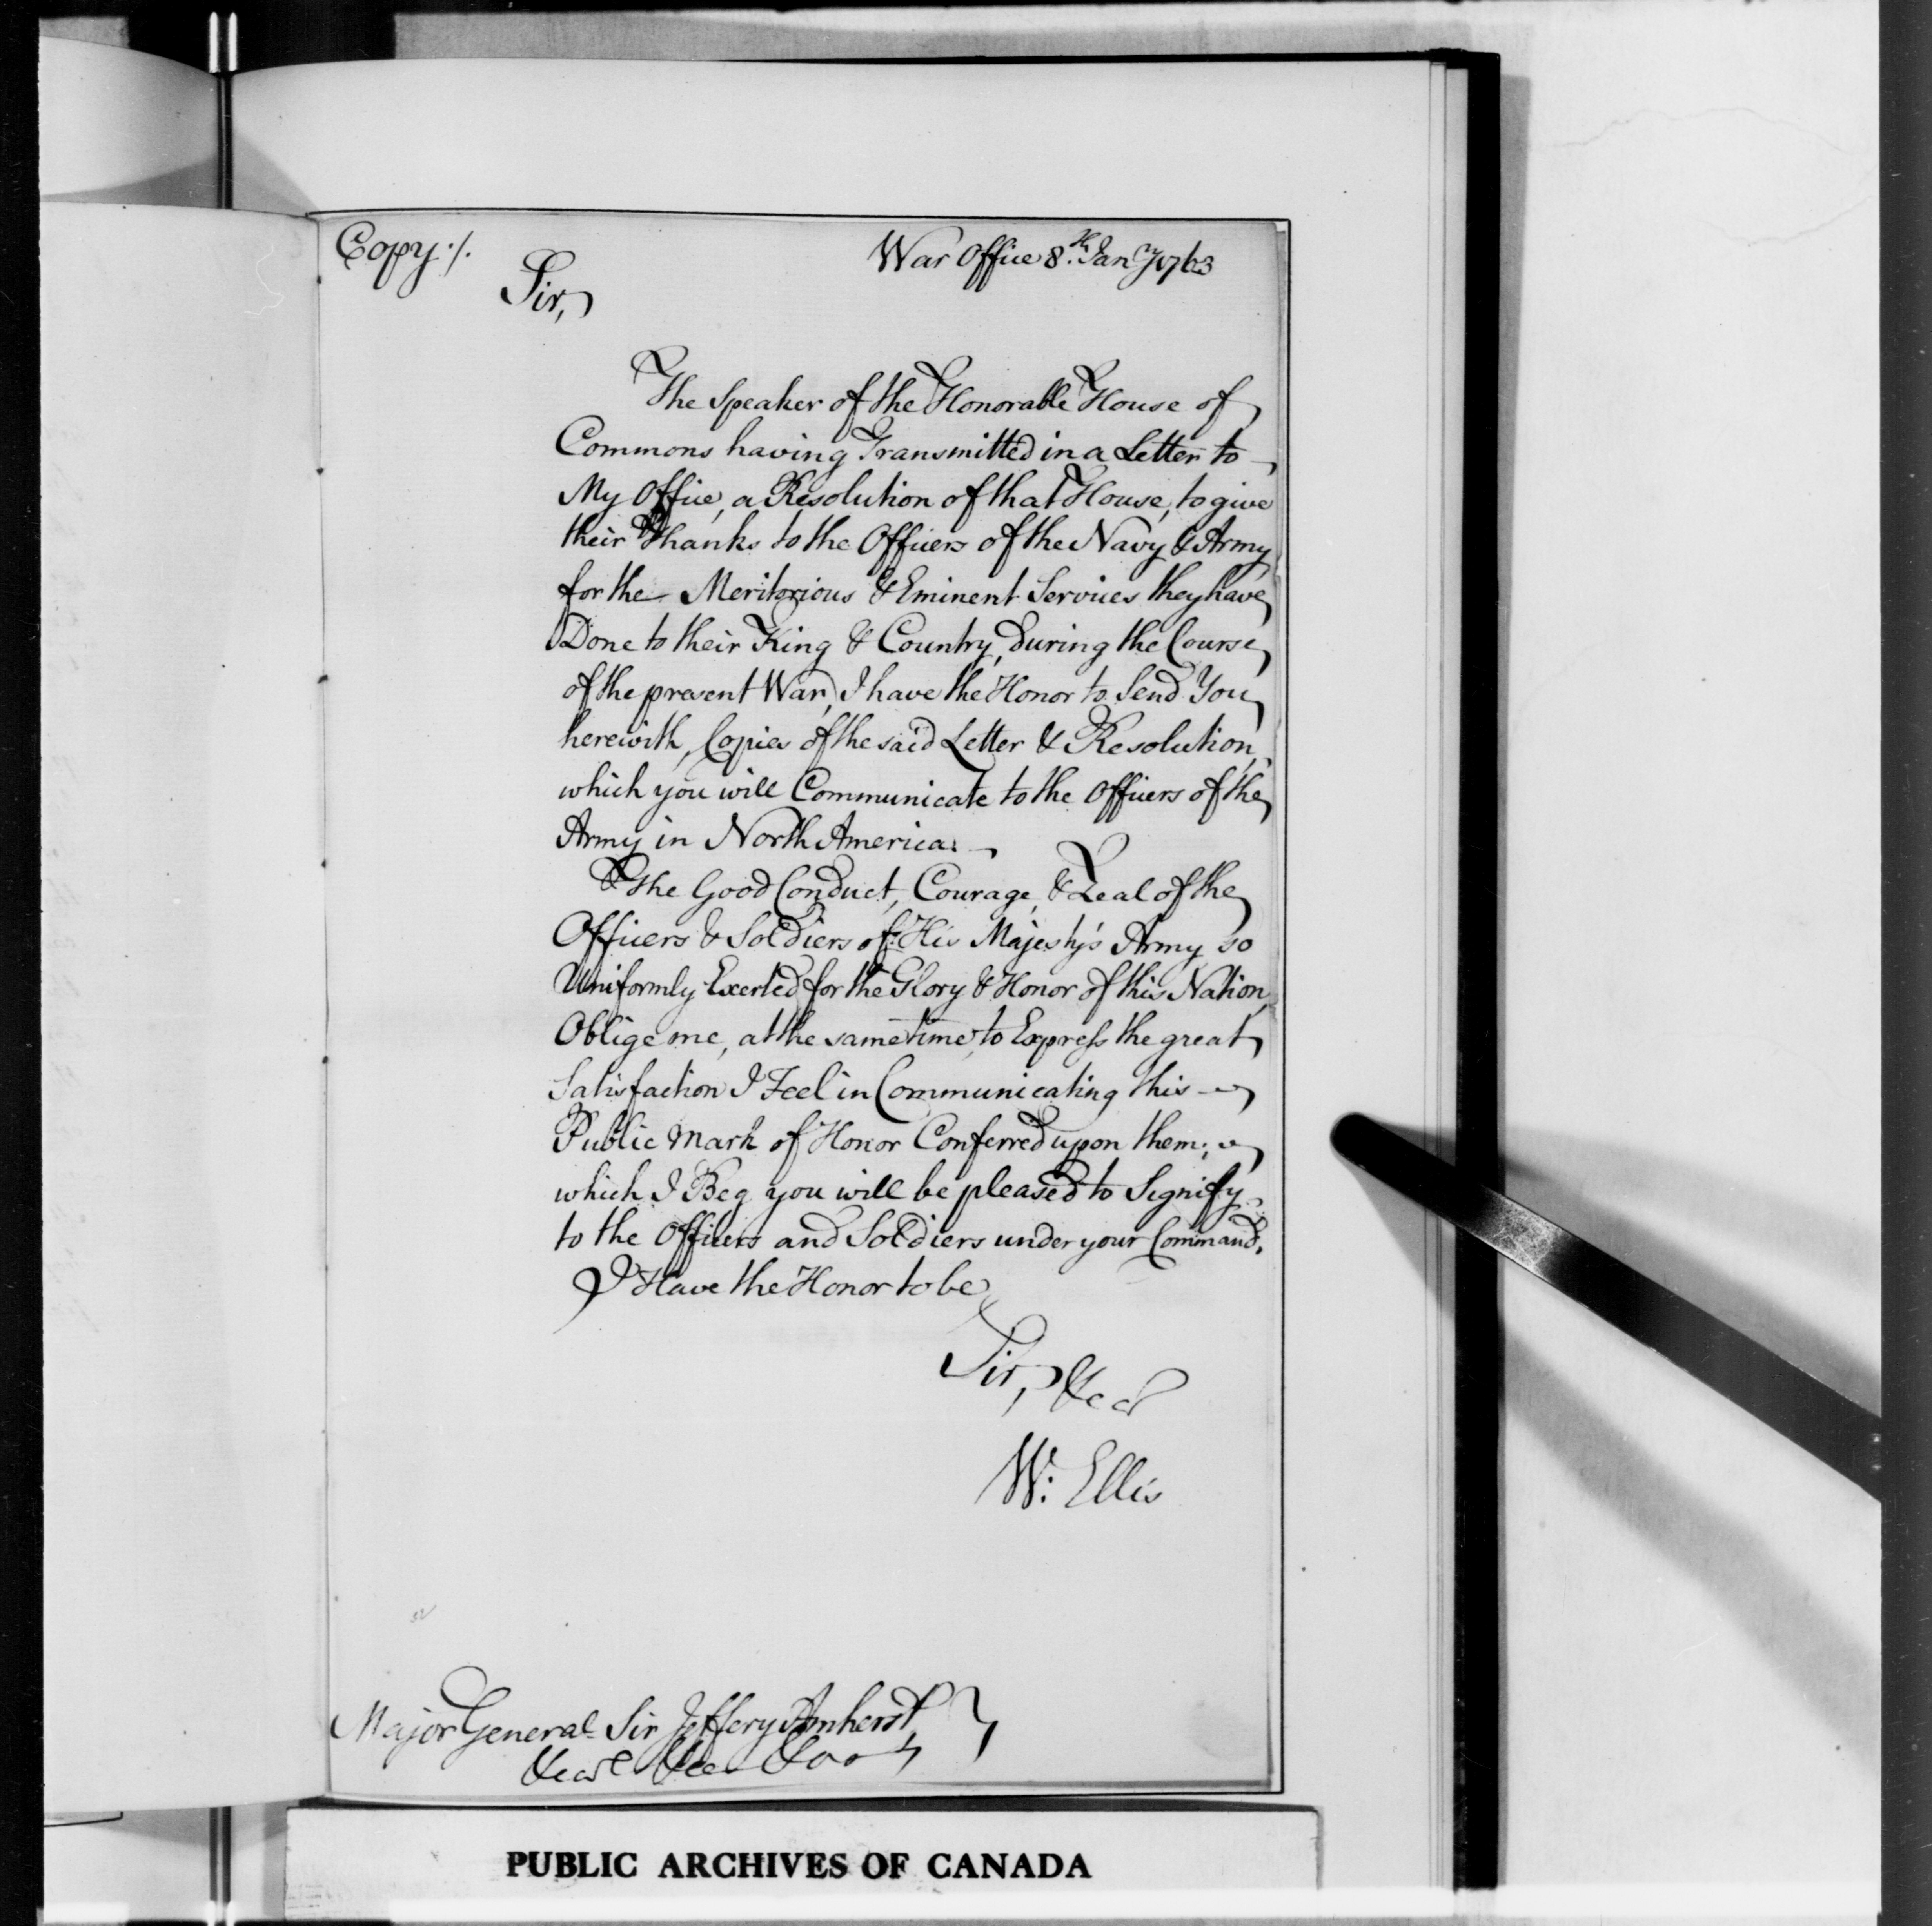 Copy ./.
War Office 8.th Jan.ry 1763
Sir,
The Speaker of the Honorable House of
Commons having Transmitted in a Letter to
My Office, a Resolution of that House, to give
their Thanks to the Officers of the Navy & Army
for the Meritorious & Eminent Services they have
Done to their King & Country, During the Course
of the present War, I have the Honor to Send You
herewith, Copies of the said Letter & Resolution,
which you will Communicate to the Officers of the
Army in North America.
The Good Conduct, Courage, & Zeal of the
Officers & Soldiers of His Majesty's Army so
Uniformly Exerted for the Glory & Honor of this Nation,
Oblige me, at the same time, to Express the great
Satisfaction I Feel in Communicating this
Public Mark of Honor Conferred upon them;
which I Beg you will be pleased to Signify
to the Officers and Soldiers under your Command.
I Have the Honor to be
Sir, &ca
W: Ellis
Major General Sir Jeffery Amherst,
&ca &ca &ca
PUBLIC ARCHIVES OF CANADA